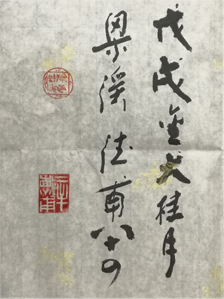 戊戌金秋桂月
梁溪德甫八十四